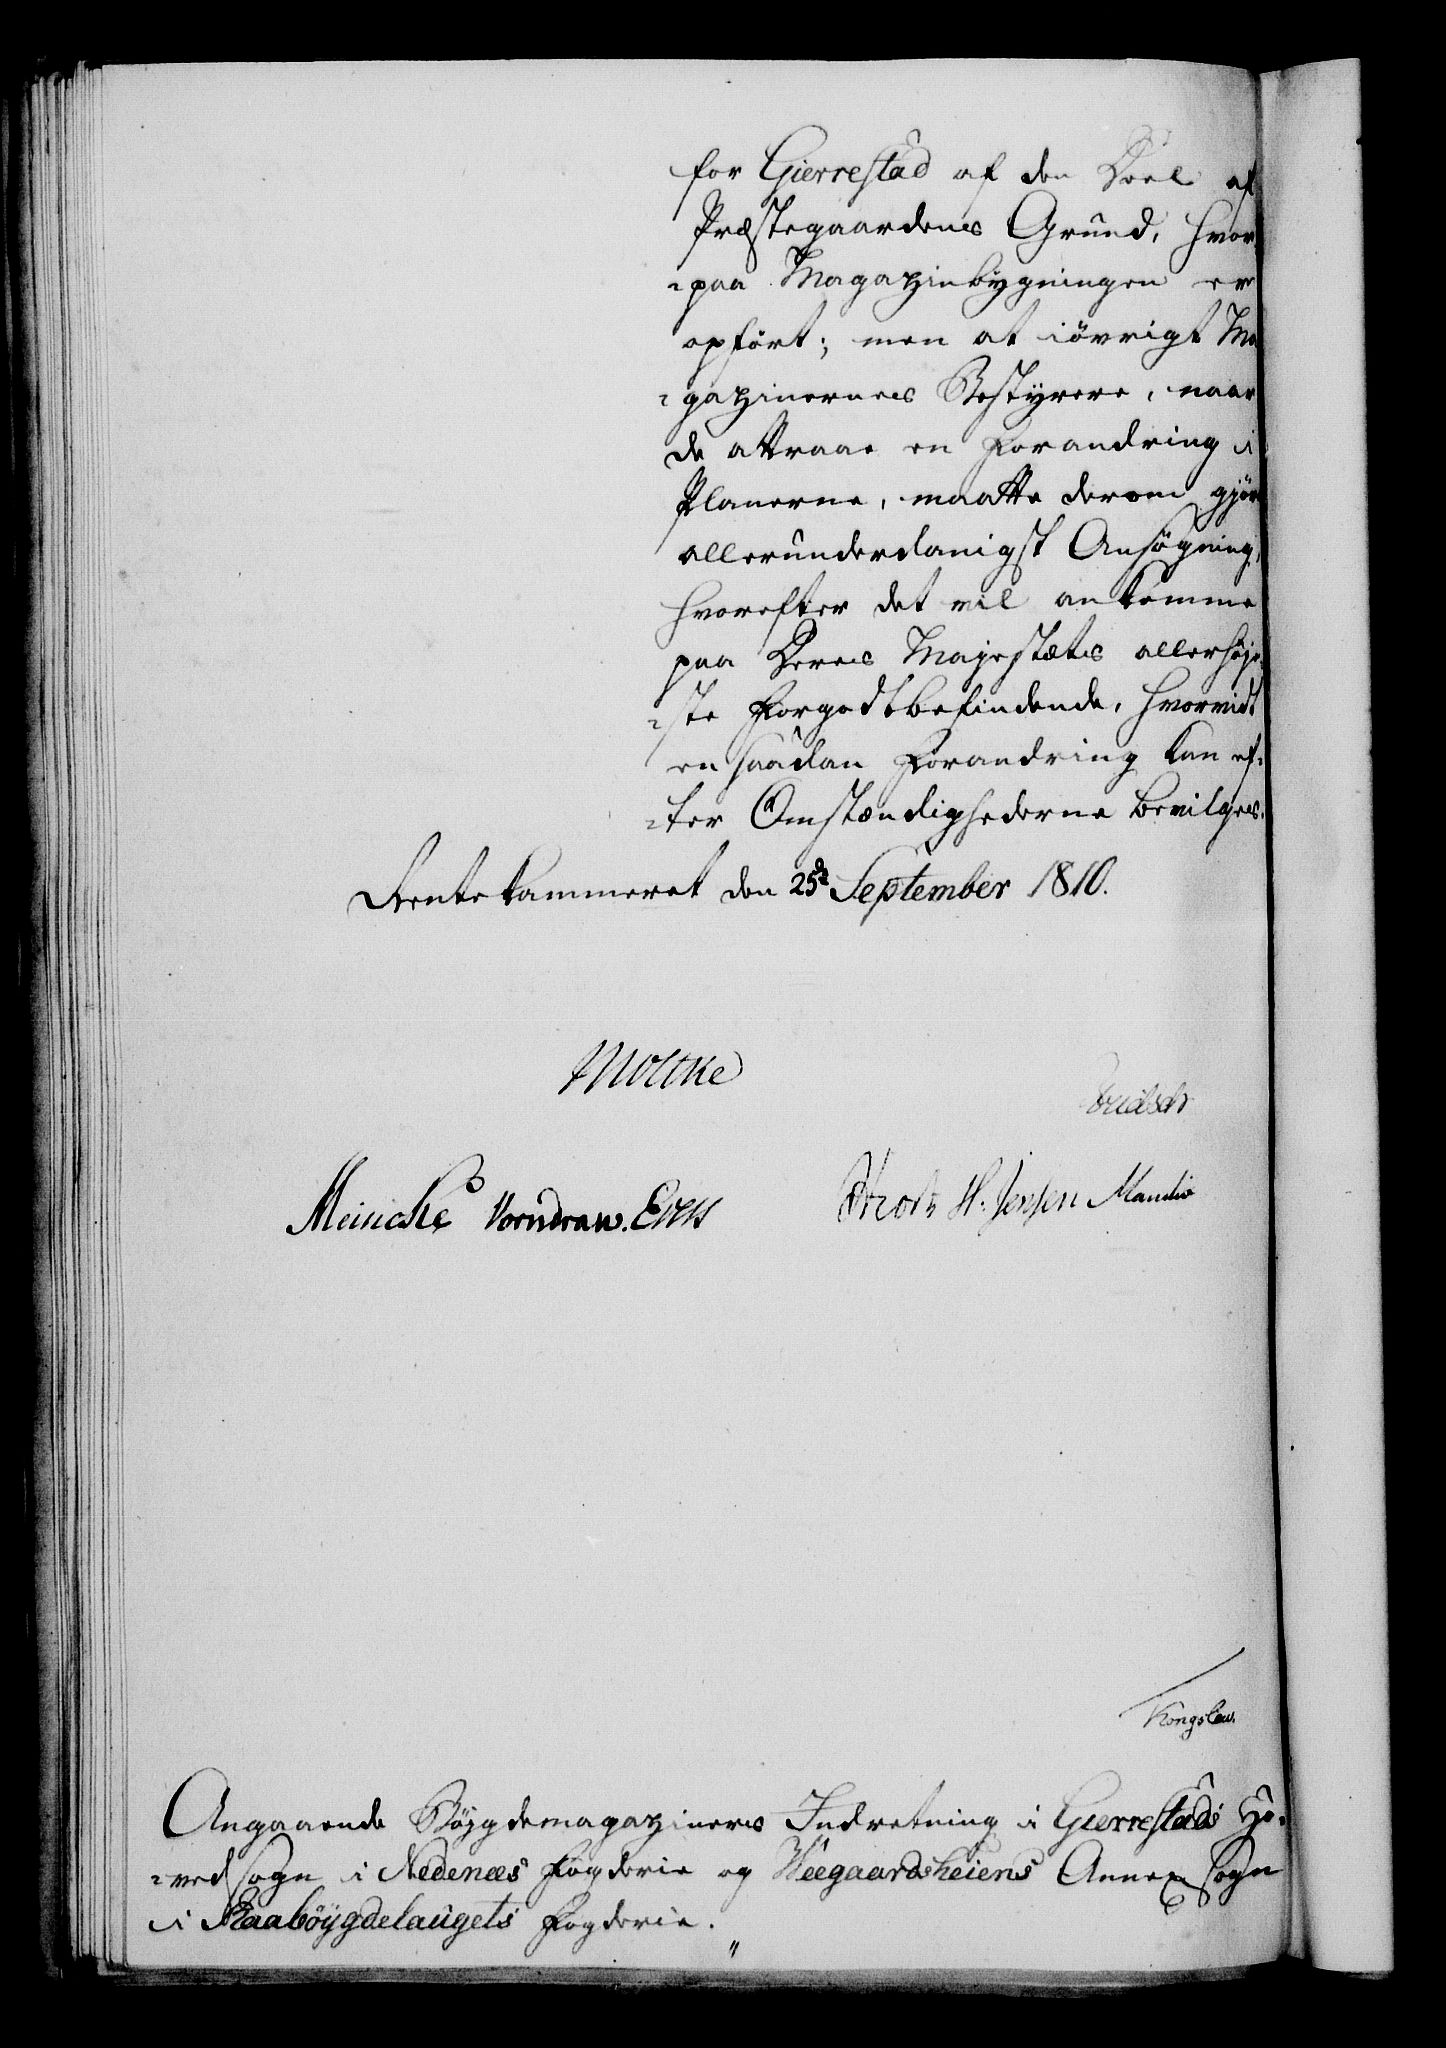 for Gierrestad af den Deel af
Præstegaardens Grund, hvor-
-paa Magazinbygningen er
opført; men at iøvrigt Ma-
-gazinernes Bestyrere, naar
de attraae en Forandring i
Planerne, maatte derom gjøre
allerunderdanigst Ansøgning,
hvorefter det vil ankomme
paa Deres Majestæts allerhøje-
-ste Forgodtbefindende, hvorvidt
en saadan Forandring kan ef-
-ter Omstændighederne bevilges.
Rentekammeret den 25d September 1810.
Moltke
Meincke Vorndran. Evers H. Jensen Manthe
Kongslew.
Angaaende Bøygdemagaziners Indretning i Gierrestads Ho-
-vedsogn i Nedenæs Fogderie og Weegaardsheiens Annex Sogn
i Raabøygdelaugets Fogderie.
"